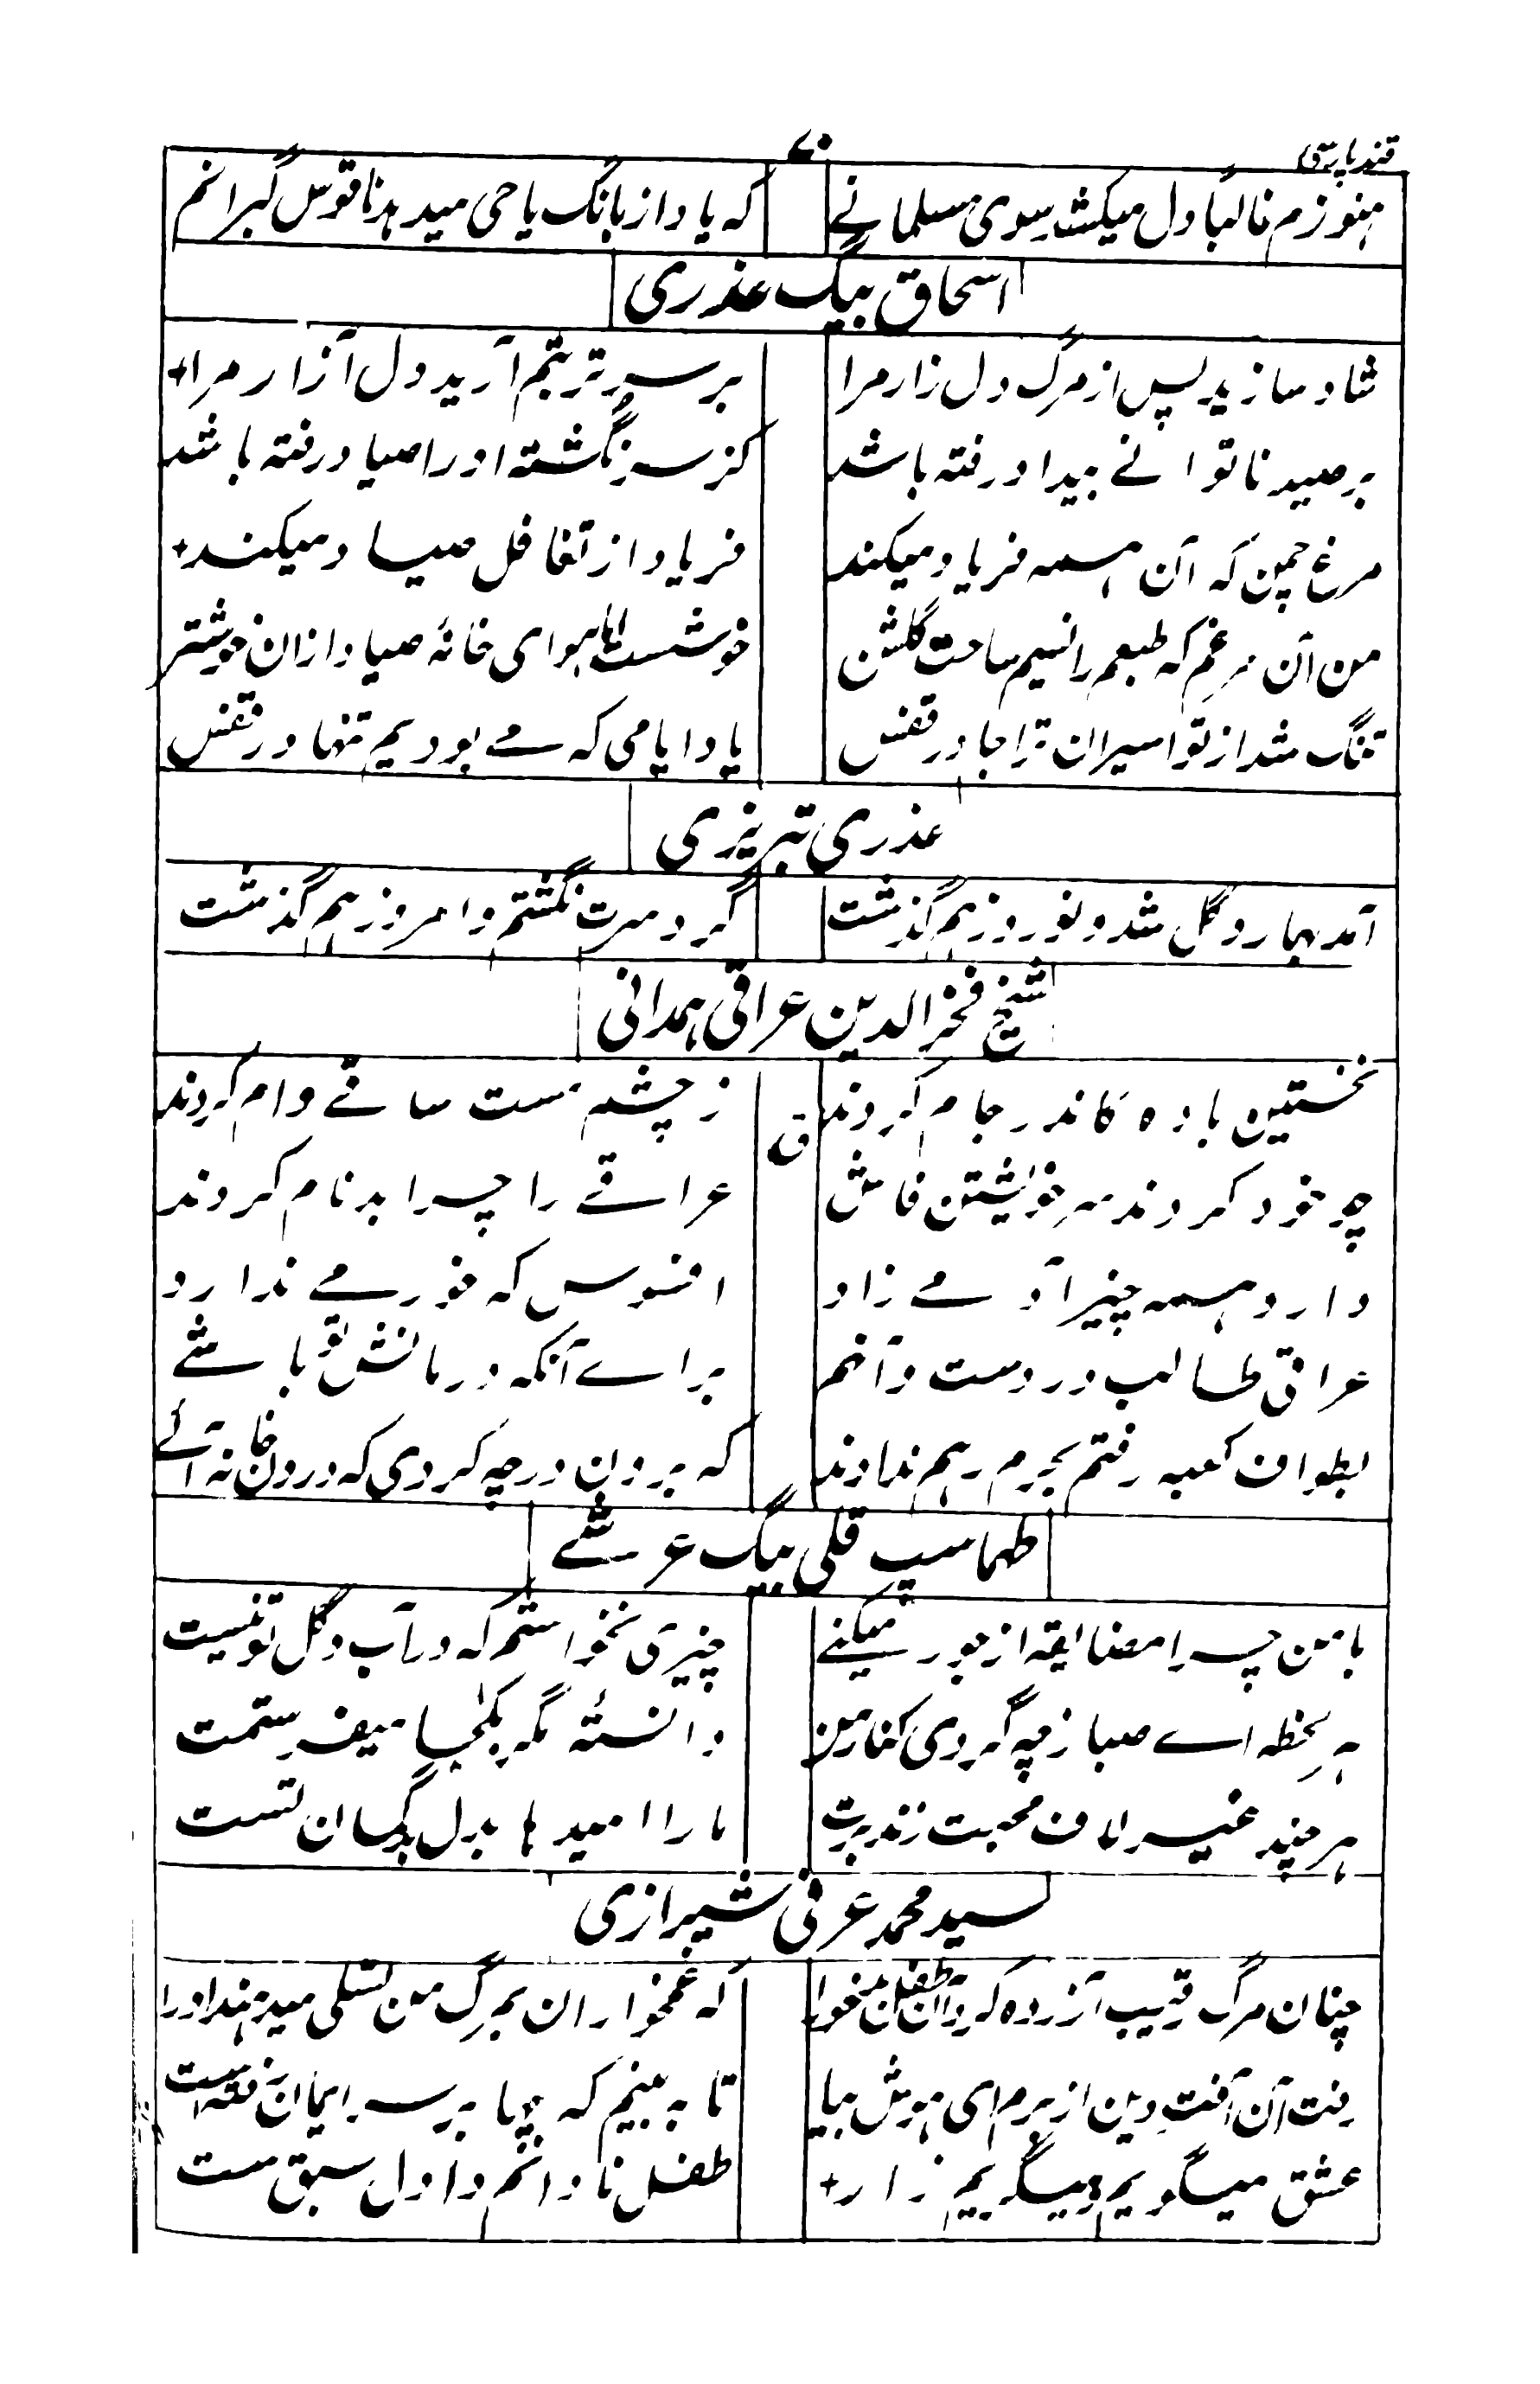 قند پارسی
۷۰
هنوزم غالبا دل میکشد سوی مسلمانے
که یاد از بانگ یا حی میدهد ناقوس گبرانم
اسحاق بیگ عذری
شاد سازید پس از مرگ دل زار مرا
بر سر تربتم آرید دل آزار مرا
بر صید ناتوانے بیداد رفته باشد
کز سر گذشته او را صیاد رفته باشد
مرغ چمن که آن همه فریاد میکند
فریاد از تغافل صیاد میکند
من آن مرغم که طبعم را نسیم ساحت گلشن
خوشست اما هوای خانهٔ صیاد از ان خوشتر
تنگ شد از نو اسیران ترا جا در قفس
یاد ایامی که مے بودیم تنها در قفس
عذری تبریزی
آمد بهار و گل شد و نوروز هم گذشت
گرد سرت نگشتم و امروز هم گذشت
شیخ فخرالدین عراقی همدانی
نخستین باده کاندر جام کردند
ز چشم مست ساقے وام کردند
ق
چو خود کردند سر خویشتن فاش
عراقے را چرا بدنام کردند
دارد همه چیز آدمے زاد
افسوس که خورمے ندارد
عراقی طالب دردست دائم
براے آنکه درمانش تو باشے
بطواف کعبه رفتم بحرم رهم ندادند
که برون در چه کردی که درون خانه آئے
طهماسپ قلی بیگ عرشے
با من چرا مضایقه از جور میکنے
چیزی نخواستم که در آب و گل تو نیست
هر لحظه اے صبا ز چه گردی کنار من
دانستۂ مگر بکجا میفرستمت
هر چند غیر لاف محبت زند برت
ما را امیدها بدل بدگمان تست
سید محمد عرفی شیرازی
چنان مرگ رقیب آزرده کرد آن طفل بدخو را
که غمخواران بمرگ من تسلی میدهند او را
رفت آن آفت دین از برم ای هوش بیا
تا به بینم که چها بر سر ایمان رفته است
عشق میگویم و میگریم زار
طفل نادانم و اول سبق ست